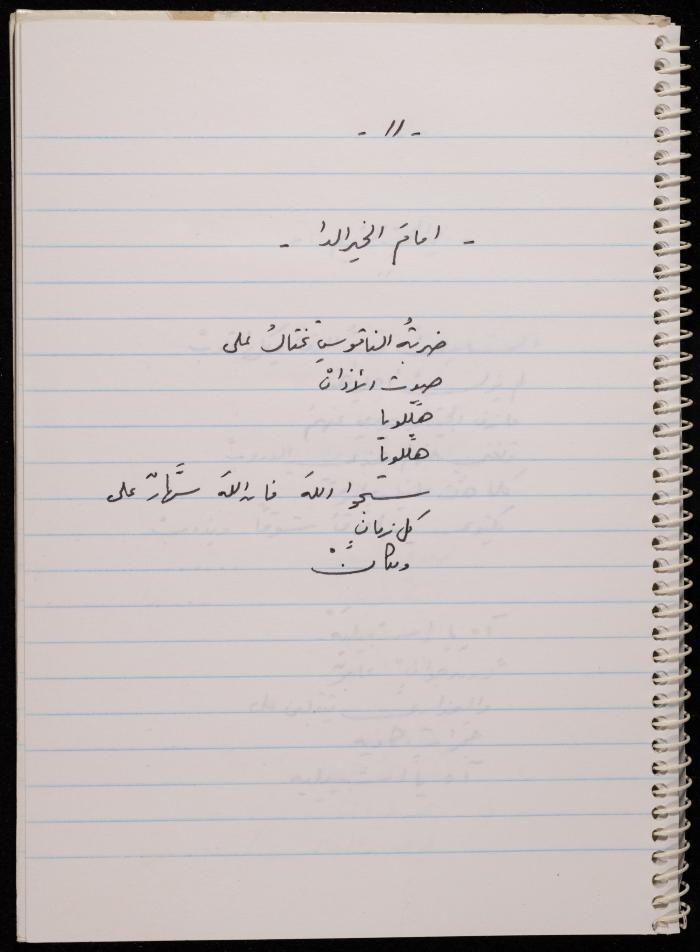 - ١١ -
- امامَ الخير الدا -
ضربةُ الناقوسِ تختالُ على
صوت الأذانْ
هلّلويا
هلّلويا
سبّحوا اللهَ فان اللهَ سهَّارٌ على
كل زمانٍ
ومكانْ